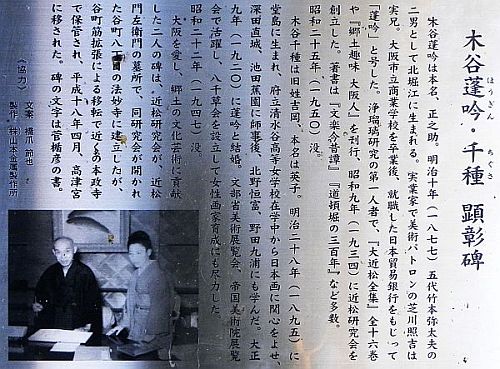 木谷蓬吟・千種 顕彰碑
ほうぎん
ちぐさ
木谷蓬吟は本名、正之助。明治十年(一八七七)五代竹本弥太夫の
二男として北堀江に生まれる。実業家で美術パトロンの芝川照吉は
実兄。大阪市立商業学校を卒業後、就職した日本貿易銀行をもじって
「蓬吟」と号した。浄瑠璃研究の第一人者で、『大近松全集』全十六巻
や『郷土趣味 大阪人』を刊行、昭和九年(一九三四)に近松研究会を
創立した。著書は『文楽今昔譚』『道頓堀の三百年』など多数。
昭和二十五年(一九五〇)没。
木谷千種は旧姓吉岡、本名は英子。明治二十八年(一八九五)に
堂島に生まれ、府立清水谷高等女学校在学中から日本画に関心をよせ、
深田直城、池田蕉園に師事後、北野恒富、野田九浦にも学んだ。大正
九年(一九二〇)に蓬吟と結婚、文部省美術展覧会、帝国美術院展覧
会で活躍し、八千草会を設立して女性画家育成にも尽力した。
昭和二十二年(一九四七)没。
大阪を愛し、郷土の文化芸術に貢献
した二人の碑は、近松研究会が、近松
門左衛門の墓所で、同研究会が開かれ
た谷町八丁目の法妙寺に建立したが、
谷町筋拡張による移転で近くの本政寺
で保管され、平成十八年四月、高津宮
に移された。碑の文字は菅楯彦の書。
〈協力〉
文案 橋爪節也
製作 ㈱山本金属製作所